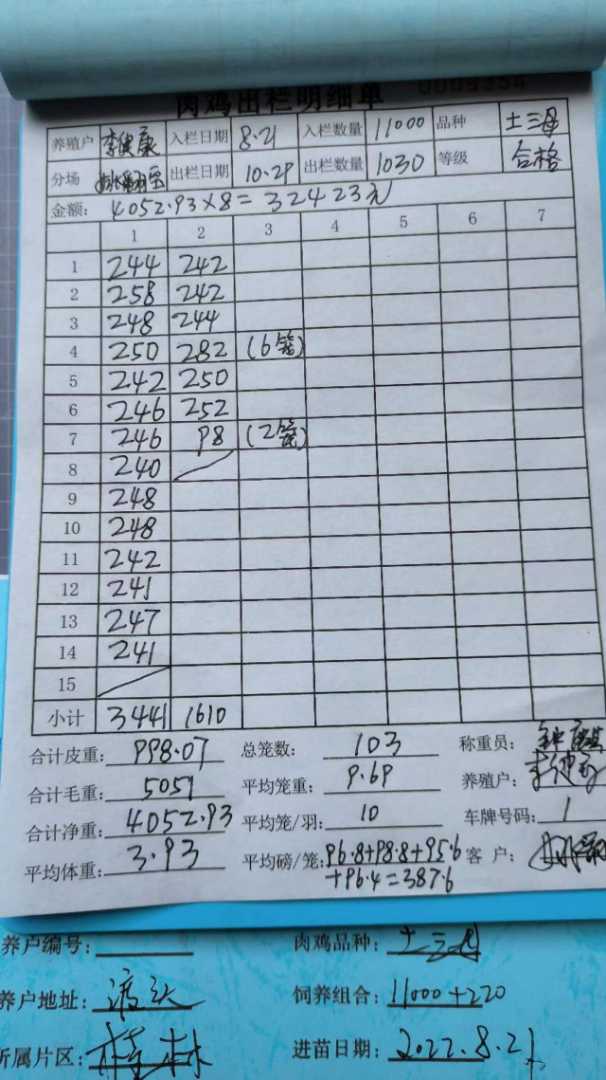 肉鸡出栏明细单
养殖户 李健康 入栏日期 8.21 入栏数量 11000 品种 土三母
分场 出栏日期 10.29 出栏数量 1030 等级 合格
金额: 4052.93×8=32423元
1 2 3 4 5 6 7
1 244 242
2 258 242
3 248 244
4 250 282 (6笼)
5 242 250
6 246 252
7 246 98 (2笼)
8 240
9 248
10 248
11 242
12 241
13 247
14 241
15
小计 3441 1610
合计皮重: 998.07 总笼数: 103 称重员:
合计毛重: 5051 平均笼重: 9.69 养殖户:
合计净重: 4052.93 平均笼/羽: 10 车牌号码: 1
平均体重: 3.93 平均磅/笼: 96.8+98.8+95.6 客 户:
+96.4=387.6
养户编号: 肉鸡品种: 土三母
养户地址: 渡头 饲养组合: 11000+220
所属片区: 桂林 进苗日期: 2022.8.21